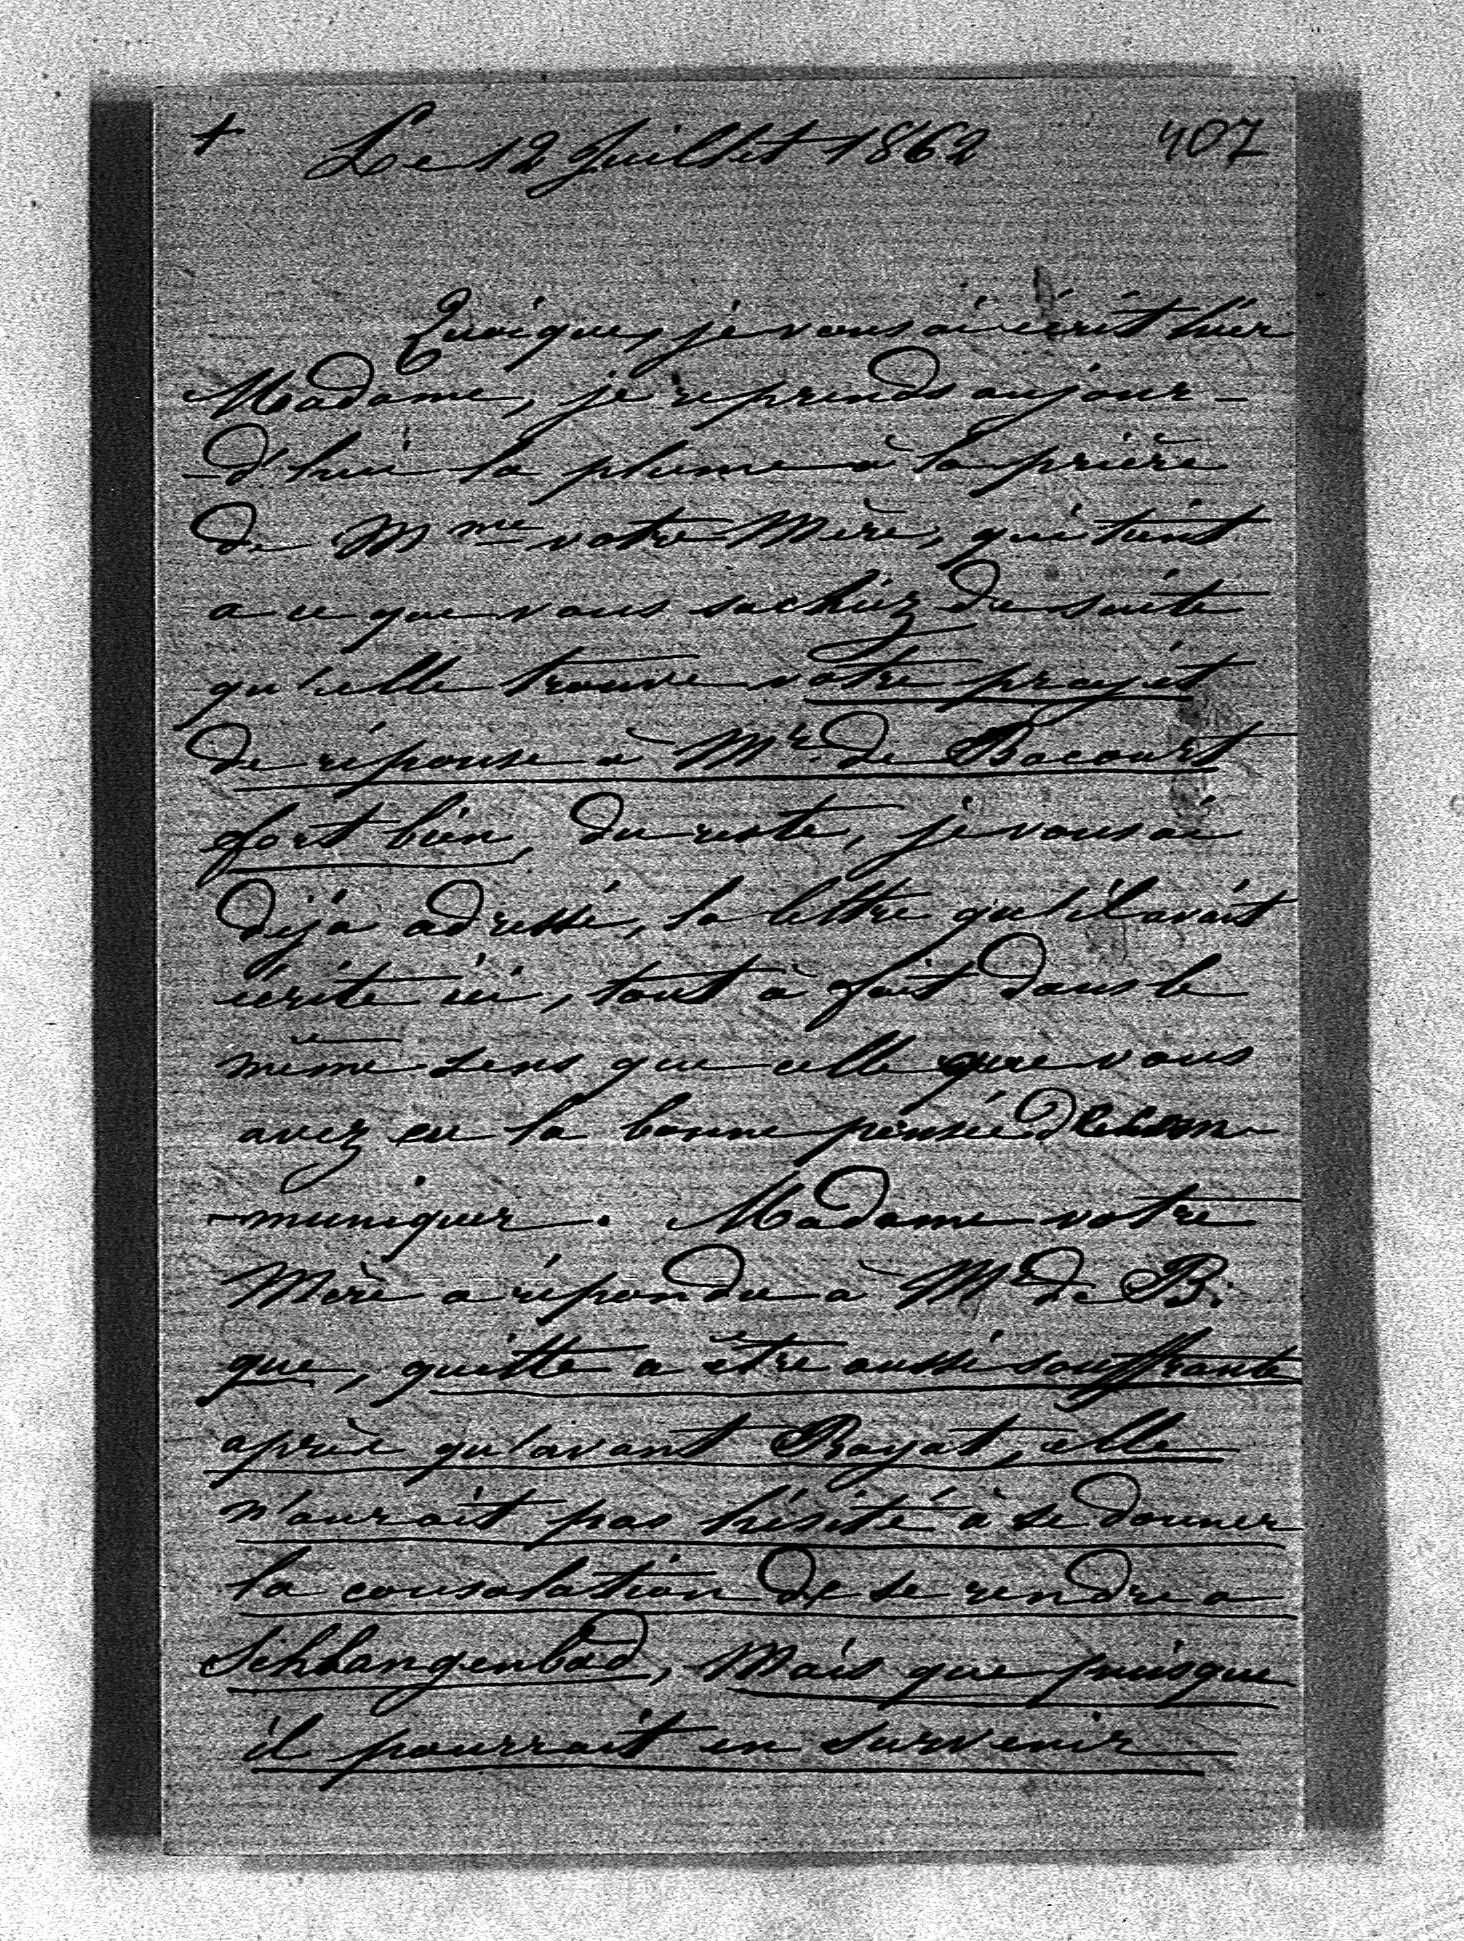 + Le 12 Juillet 1862 407
Quoique, je vous ai écrit hier
Madame, je reprends aujour-
-d'hui la plume à la prière
de Mme votre Mère, qui tient
a ce que vous sachiez de suite
qu'elle trouve votre projet
de réponse à Mr de Bacourt
fort bien, du reste, je vous ai
déjà adressé, la lettre qu'il avait
écrite ici, tout à fait dans le
même sens que celle que vous
avez eu la bonne pensée de com
-muniquer. Madame votre
Mère a répondu à Mr de B.
que, quitte a être aussi souffrante
après qu'avant Royat, elle
n'aurait pas hésité à se donner
la consolation de se rendre a
Schlangenbad, Mais que puisque
il pourrait en survenir